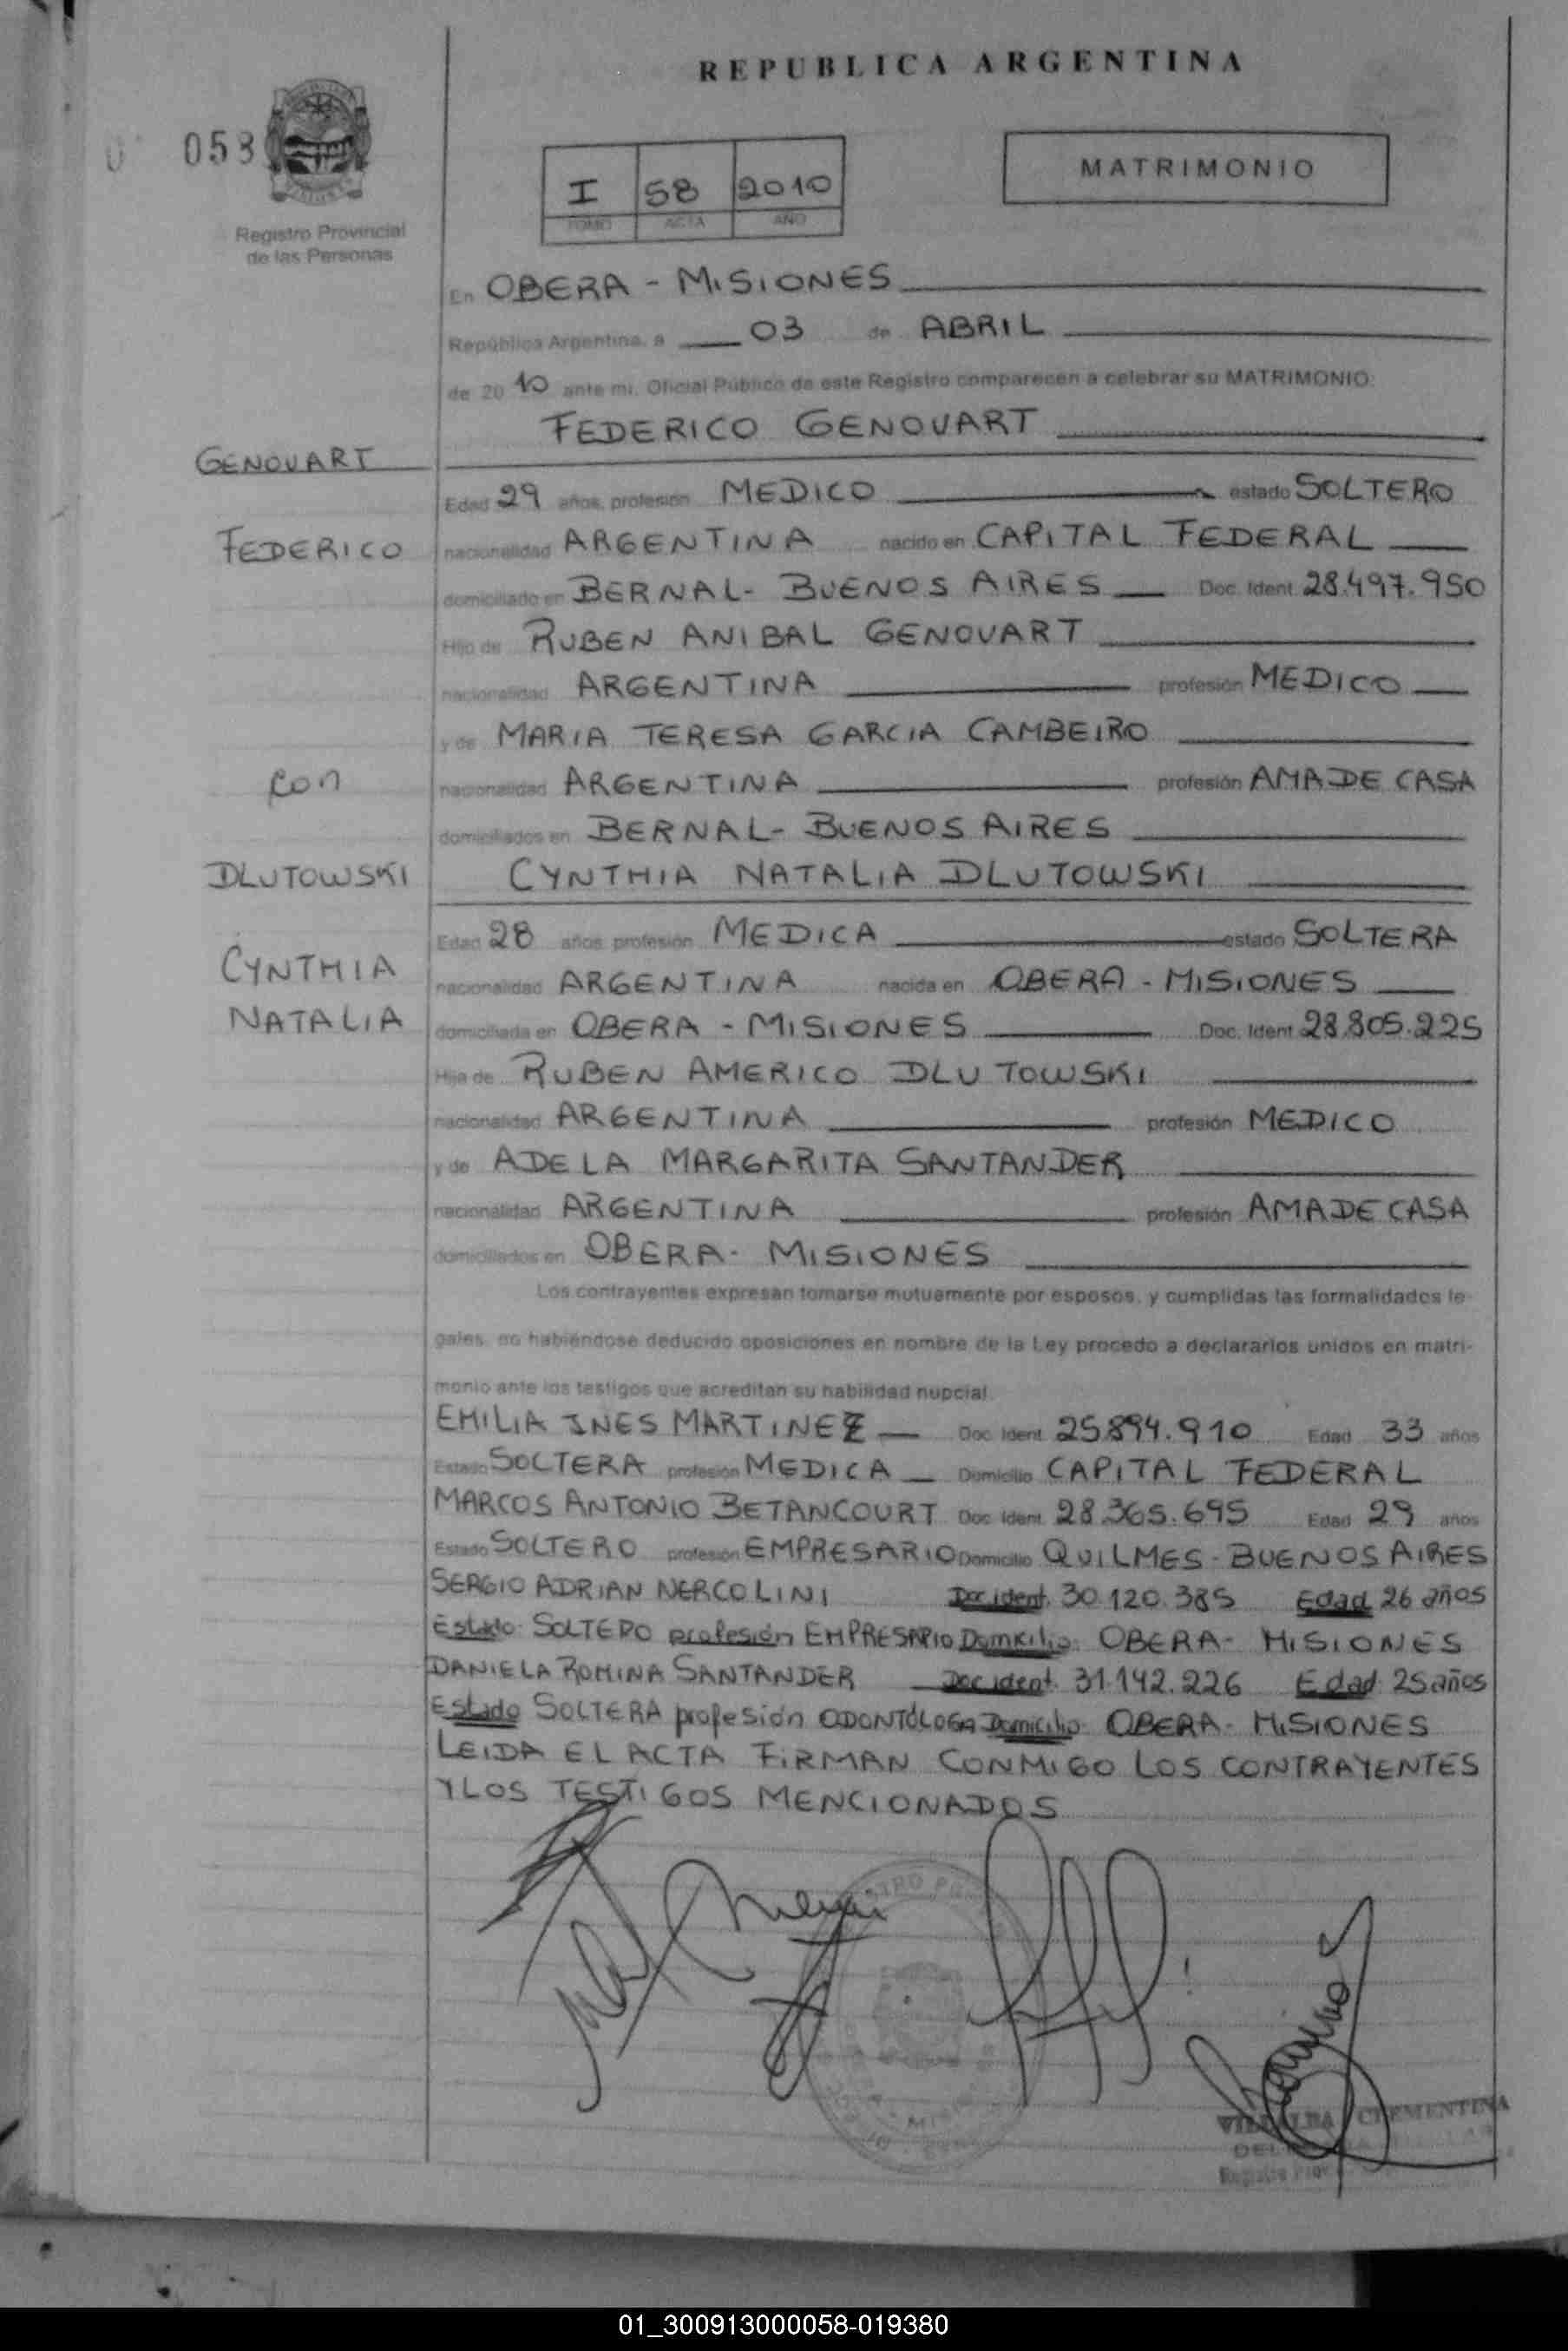 REPUBLICA ARGENTINA
058
MATRIMONIO
I 58 2010
TOMO ACTA AÑO
Registro Provincial
de las Personas
En OBERA - MISIONES
República Argentina, a 03 de ABRIL
de 2010 ante mi, Oficial Público de este Registro comparecen a celebrar su MATRIMONIO:
FEDERICO GENOVART
GENOVART
Edad 29 años, profesión MEDICO estado SOLTERO
FEDERICO
nacionalidad ARGENTINA nacido en CAPITAL FEDERAL
domiciliado en BERNAL- BUENOS AIRES Doc. Ident. 28.497.950
Hijo de RUBEN ANIBAL GENOVART
nacionalidad ARGENTINA profesión MEDICO
y de MARIA TERESA GARCIA CAMBEIRO
con
nacionalidad ARGENTINA profesión AMA DE CASA
domiciliados en BERNAL- BUENOS AIRES
DLUTOWSKI
CYNTHIA NATALIA DLUTOWSKI
Edad 28 años profesión MEDICA estado SOLTERA
CYNTHIA
nacionalidad ARGENTINA nacida en OBERA - MISIONES
NATALIA
domiciliada en OBERA - MISIONES Doc. Ident. 28.805.225
Hija de RUBEN AMERICO DLUTOWSKI
nacionalidad ARGENTINA profesión MEDICO
y de ADELA MARGARITA SANTANDER
nacionalidad ARGENTINA profesión AMA DE CASA
domiciliados en OBERA- MISIONES
Los contrayentes expresan tomarse mutuamente por esposos, y cumplidas las formalidades le-
gales, no habiéndose deducido oposiciones en nombre de la Ley procedo a declararlos unidos en matri-
monio ante los testigos que acreditan su habilidad nupcial.
EMILIA INES MARTINEZ Doc. Ident. 25.894.910 Edad 33 años
Estado SOLTERA profesión MEDICA Domicilio CAPITAL FEDERAL
MARCOS ANTONIO BETANCOURT Doc. Ident. 28.365.695 Edad 29 años
Estado SOLTERO profesión EMPRESARIO Domicilio QUILMES - BUENOS AIRES
SERGIO ADRIAN NERCOLINI Doc ident. 30.120.385 Edad 26 años
Estado: SOLTERO profesión EMPRESARIO Domicilio: OBERA- MISIONES
DANIELA ROMINA SANTANDER Doc ident. 31.142.226 Edad 25 años
Estado SOLTERA profesión ODONTÓLOGA Domicilio: OBERA- MISIONES
LEIDA EL ACTA FIRMAN CONMIGO LOS CONTRAYENTES
Y LOS TESTIGOS MENCIONADOS
VILLALBA CLEMENTINA
01_300913000058-019380